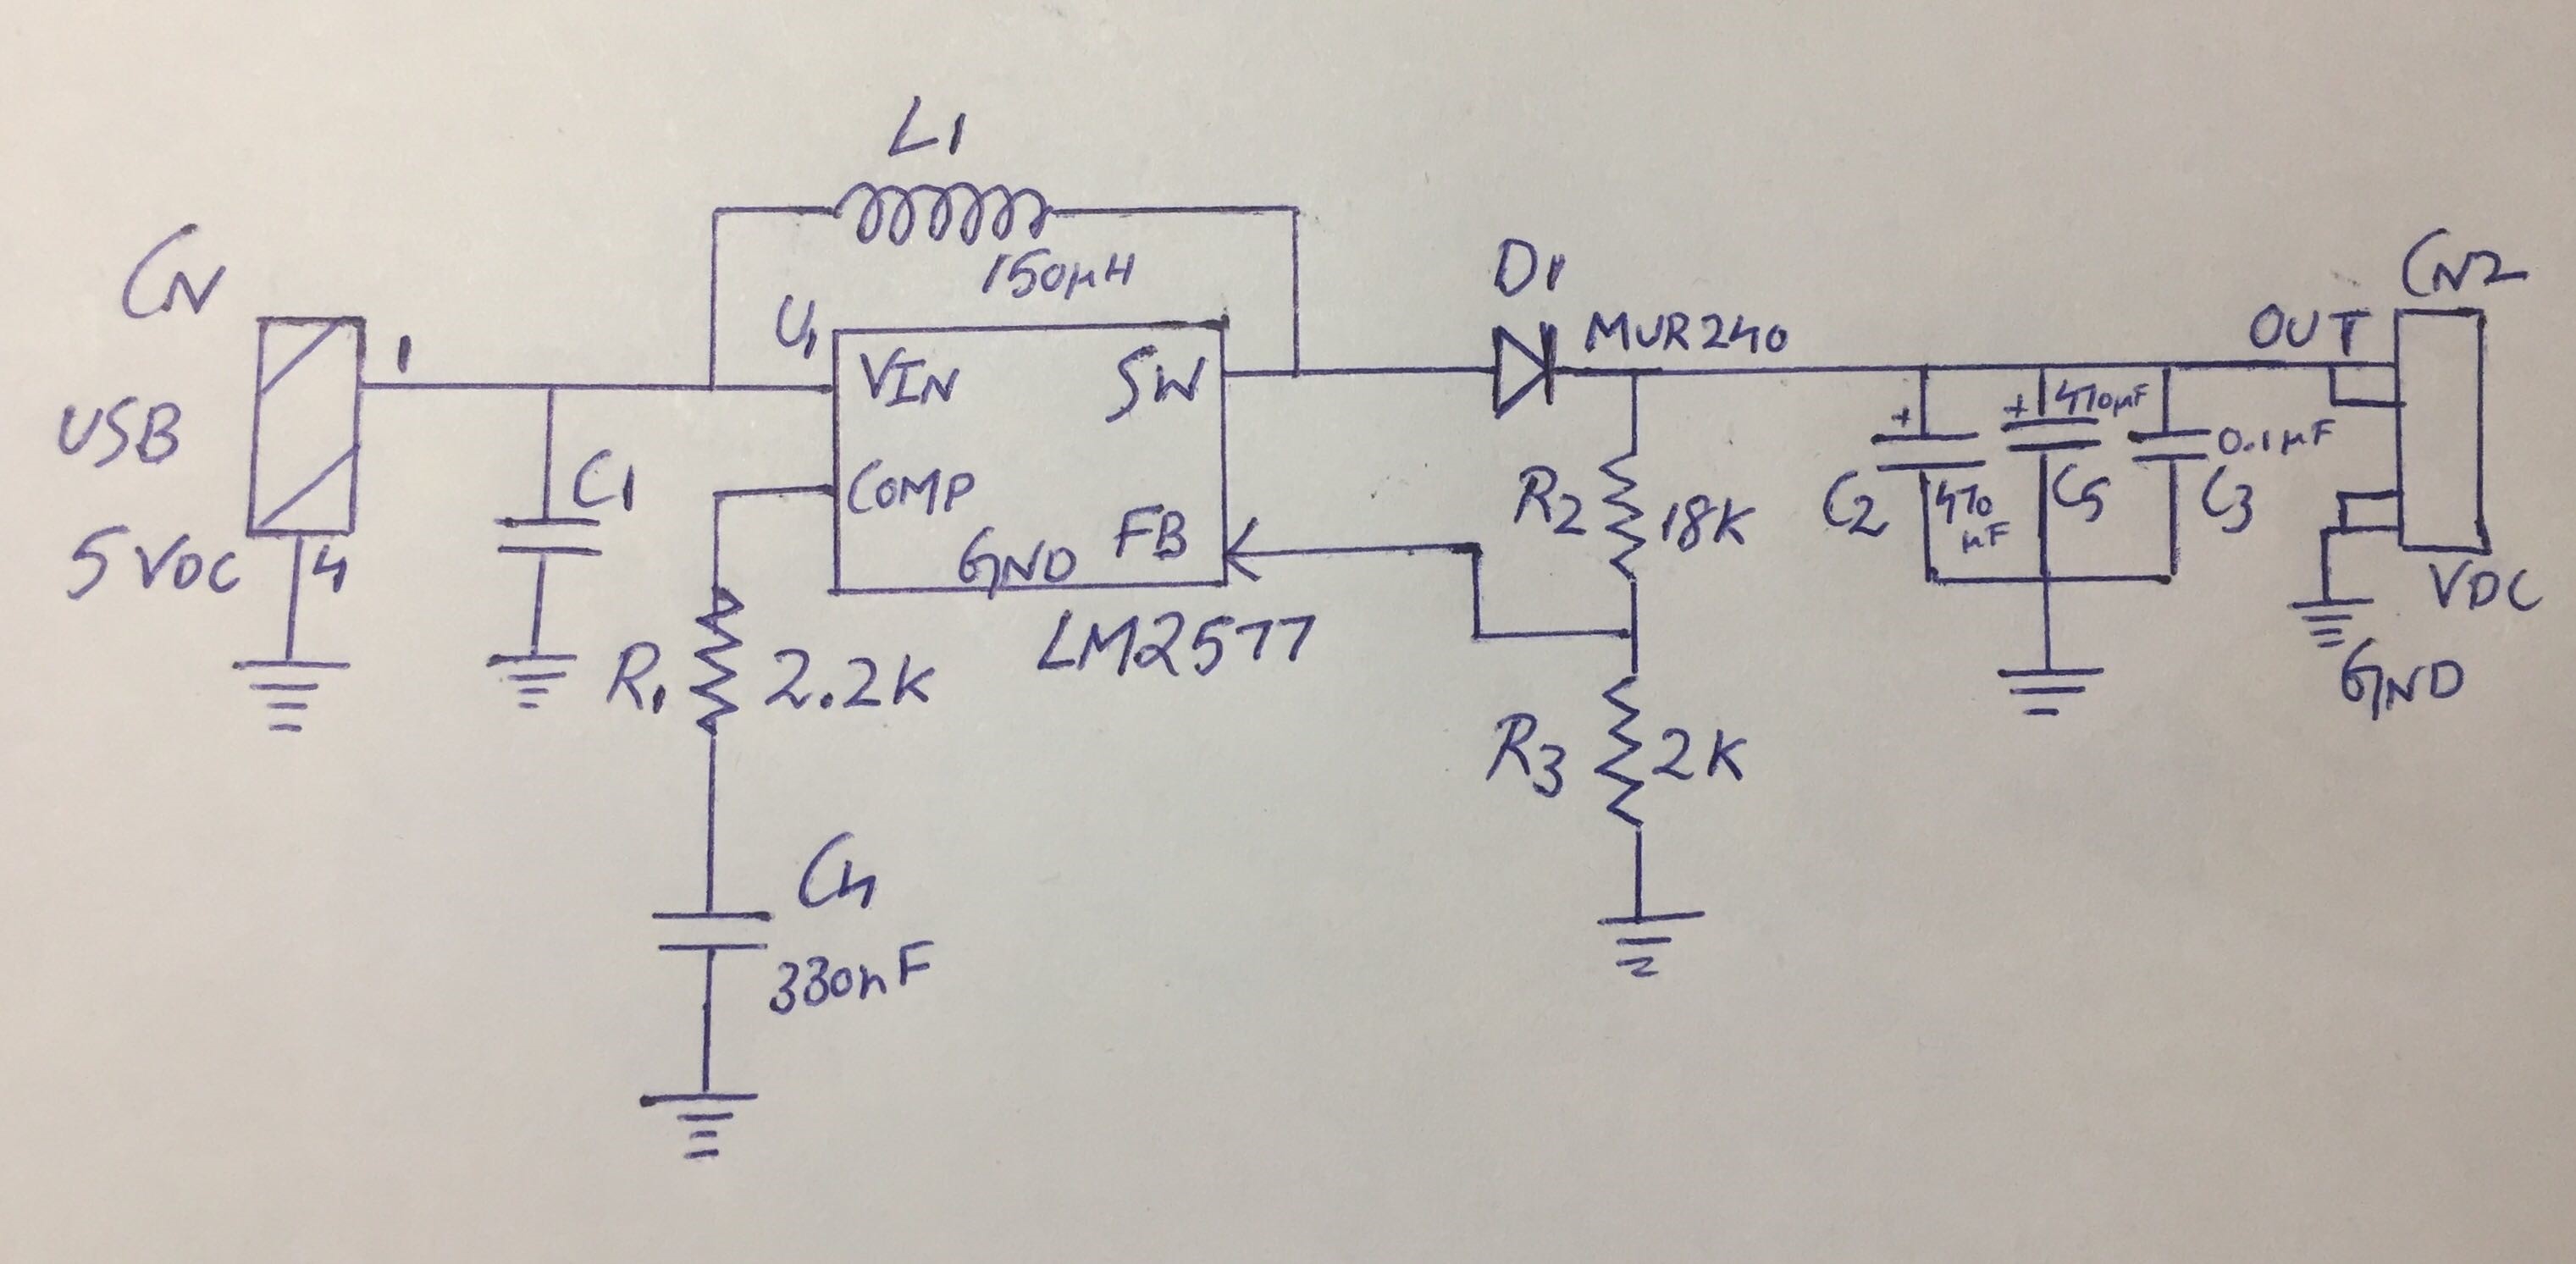 L1
150µH
CN
USB
5VDC
1
4
C1
U1
VIN
SW
COMP
FB
GND
LM2577
R1
2.2K
C4
330nF
D1
MUR240
R2
18K
R3
2K
+
C2
470
µF
+
470µF
C5
0.1µF
C3
OUT
CN2
VDC
GND